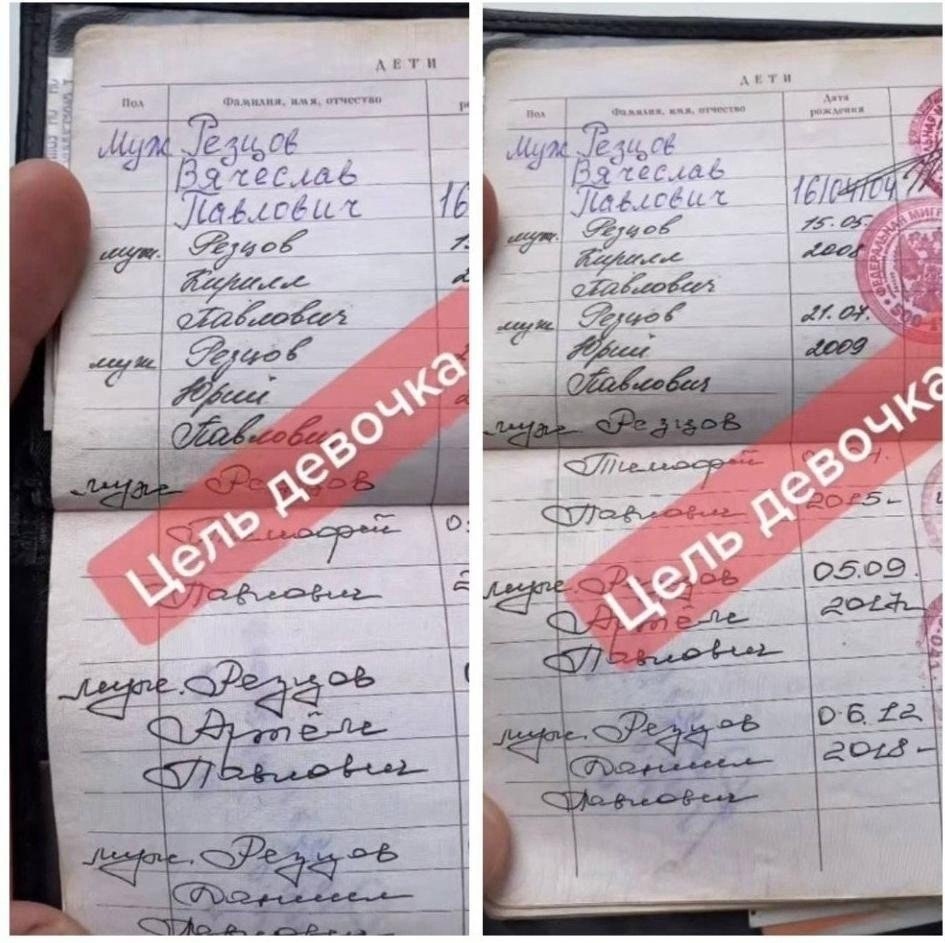 ДЕТИ
Пол
Фамилия, имя, отчество
Муж Резцов
Вячеслав
Павлович 16
муж. Резцов
Кирилл
Павлович
муж Резцов
Юрий
Павлович
муж Резцов
Тимофей
Павлович
муж. Резцов
Артём
Павлович
муж. Резцов
Даниил
Павлович
Цель девочка
ДЕТИ
Пол
Фамилия, имя, отчество
Дата рождения
Муж Резцов
Вячеслав
Павлович 16/04/04
муж. Резцов 15.05.
Кирилл 2008
Павлович
муж Резцов 21.07.
Юрий 2009
Павлович
муж Резцов
Тимофей
Павлович 2015г
муж. Резцов 05.09.
Артём 2017г
Павлович
муж. Резцов 06.12
Даниил 2018г
Павлович
ФЕДЕРАЛЬНАЯ МИГ
Цель девочка